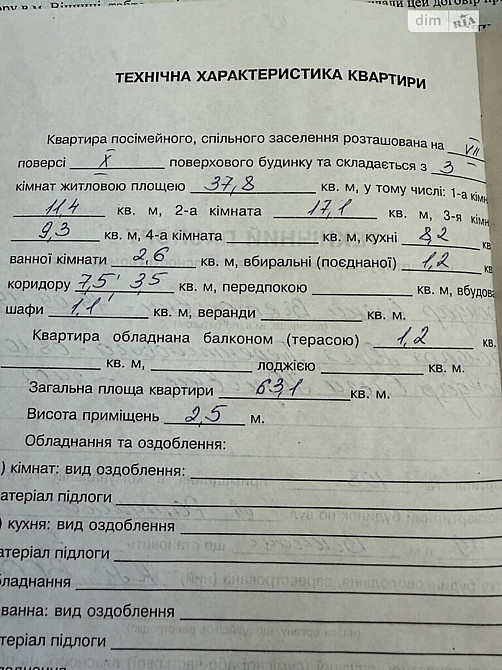 ру в м. Вінниці
цей договір
dim RIA
ТЕХНІЧНА ХАРАКТЕРИСТИКА КВАРТИРИ
Квартира посімейного, спільного заселення розташована на VII
поверсі X поверхового будинку та складається з 3
кімнат житловою площею 37,8 кв. м, у тому числі: 1-а кімн
11,4 кв. м, 2-а кімната 17,1 кв. м, 3-я кімн
9,3 кв. м, 4-а кімната кв. м, кухні 8,2 кв
ванної кімнати 2,6 кв. м, вбиральні (поєднаної) 1,2 кв
коридору 7,5' 3,5 кв. м, передпокою кв. м, вбудова
шафи 1,1' кв. м, веранди кв. м.
Квартира обладнана балконом (терасою) 1,2 кв.
кв. м, лоджією кв. м.
Загальна площа квартири 63,1 кв. м.
Висота приміщень 2,5 м.
Обладнання та оздоблення:
) кімнат: вид оздоблення:
атеріал підлоги
) кухня: вид оздоблення
атеріал підлоги
бладнання
ванна: вид оздоблення
атеріал підлоги